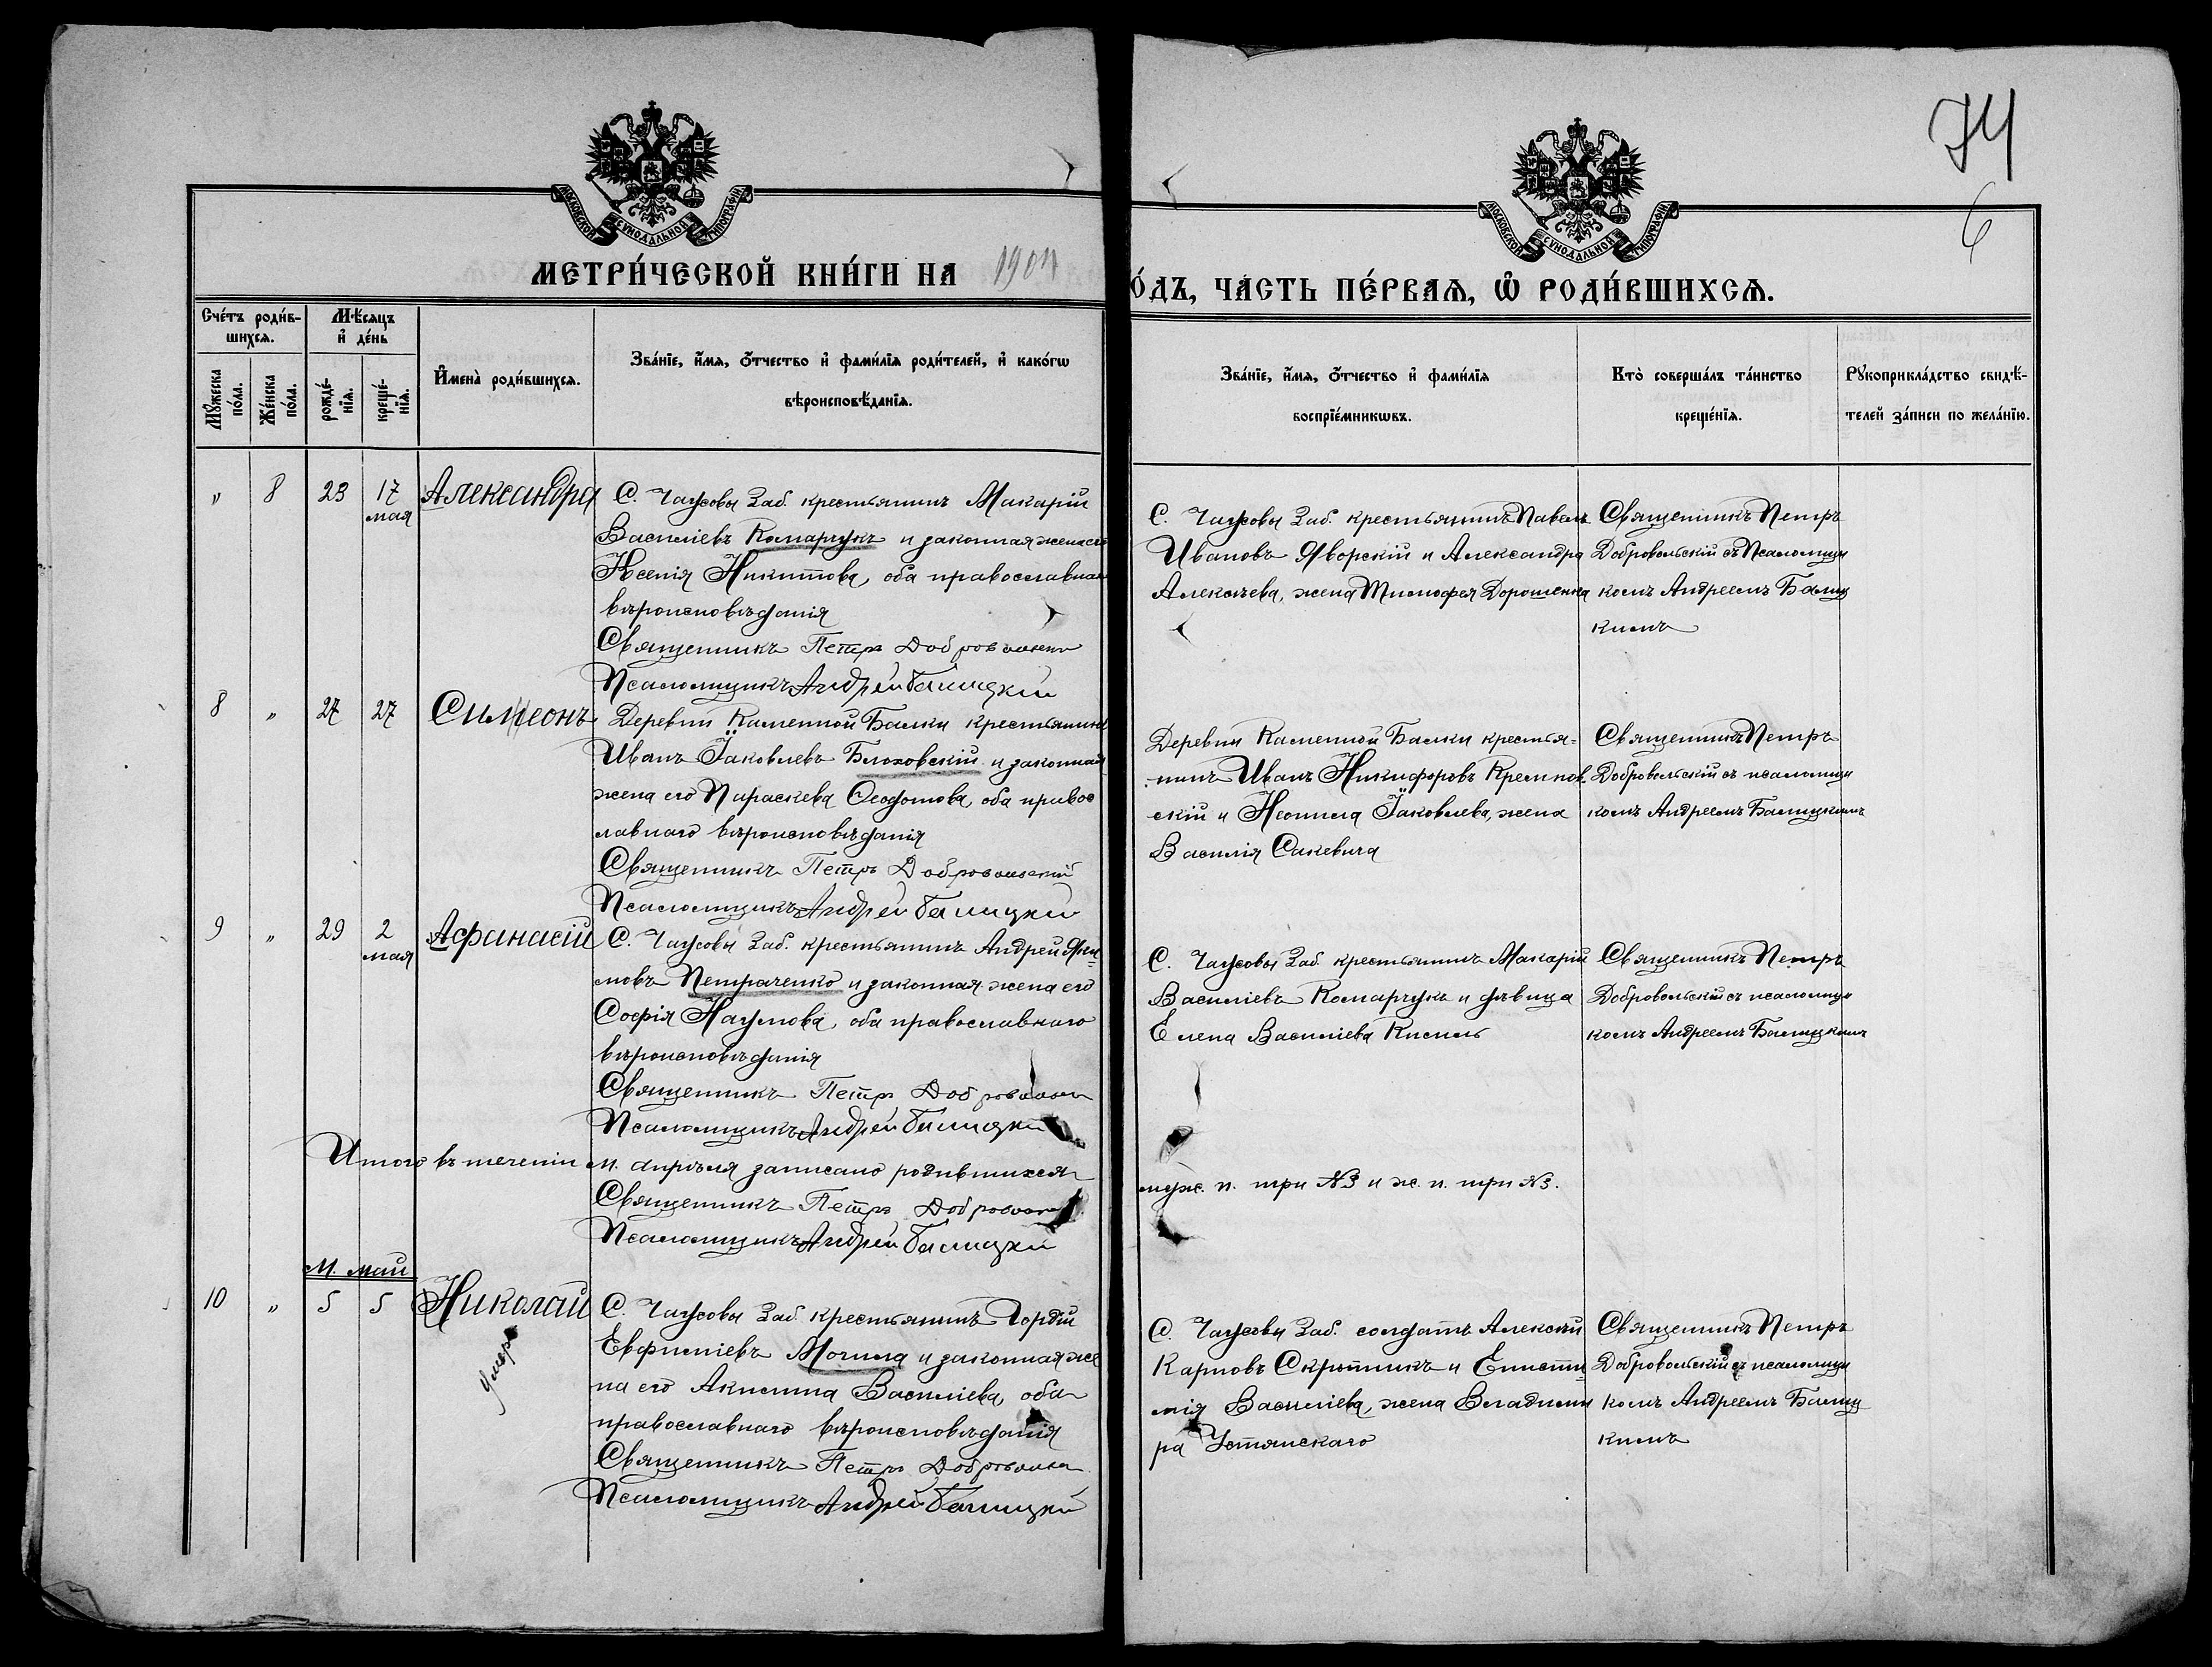 74
6
МОСКОВСКОЙ СѴНОДАЛЬНОЙ ТИПОГРАФІИ
МОСКОВСКОЙ СѴНОДАЛЬНОЙ ТИПОГРАФІИ
МЕТРИ́ЧЕСКОЙ КНИ́ГИ НА 1904
О́ДЪ, ЧА́СТЬ ПЕ́РВАѦ, Ѽ РОДИ́ВШИХСѦ.
Сче́тъ роди́в-
шихсѧ.
Мѣ́сяцъ
и҆ де́нь
Мꙋ́жеска
по́ла.
Же́нска
по́ла.
рожде́-
нїѧ.
креще́-
нїѧ.
И҆мена̀ роди́вшихсѧ.
Зва́нїе, и҆́мѧ, ѻ҆́тчество и҆ фами́лїѧ роди́телей, и҆ како́гѡ
вѣроисповѣ́данїѧ.
Зва́нїе, и҆́мѧ, ѻ҆́тчество и҆ фами́лїѧ
воспрїе́мникѡвъ.
Кто̀ соверша́лъ та́инство
креще́нїѧ.
Рꙋкоприкла́дство свидѣ́-
телей за́писи по жела́нїю.
" 8 23 17 Александра
мая
С. Чаусовы Заб. крестьянинъ Макарій
Василіевъ Комарчукъ и законная жена его
Ксенія Никитова, оба православнаго
вѣроисповѣданія
Священникъ Петръ Добровольскій
Псаломщикъ Андрей Балицкій
С. Чаусовы Заб. крестьянинъ Павелъ
Ивановъ Яворскій и Александра
Алексѣева, жена Тимофея Дорошенка
Священникъ Петръ
Добровольскій съ Псаломщи
комъ Андреемъ Балиц
кимъ
8 " 27 27 Симеонъ
Деревни Каменной Балки крестьянинъ
Иванъ Іаковлевъ Блоховскій и законная
жена его Параскева Ѳеодотова, оба правос
лавнаго вѣроисповѣданія
Священникъ Петръ Добровольскій
Псаломщикъ Андрей Балицкій
Деревни Каменной Балки крестья-
нинъ Иванъ Никифоровъ Кремнов
скій и Неонила Іаковлева, жена
Василія Сакевича
Священникъ Петръ
Добровольскій съ псаломщи
комъ Андреемъ Балицкимъ
9 " 29 2 Афанасій
мая
С. Чаусовы Заб. крестьянинъ Андрей Яки-
мовъ Петраченко и законная жена его
Софія Наумова, оба православнаго
вѣроисповѣданія
Священникъ Петръ Добровольскій
Псаломщикъ Андрей Балицкій
С. Чаусовы Заб. крестьянинъ Макарій
Василіевъ Комарчукъ и дѣвица
Елена Василіева Кисиль
Священникъ Петръ
Добровольскій съ псаломщи
комъ Андреемъ Балицкимъ
Итого въ теченіи м. апрѣля записано родившихся
муж. п. три №3 и ж. п. три №3.
Священникъ Петръ Добровольскій
Псаломщикъ Андрей Балицкій
М. май
10 " 5 5 Николай
умеръ
С. Чаусовы Заб. крестьянинъ Гордій
Евфиміевъ Могила и законная же
на его Акилина Василіева, оба
православнаго вѣроисповѣданія
Священникъ Петръ Добровольскій
Псаломщикъ Андрей Балицкій
С. Чаусовы Заб. солдатъ Алексѣй
Карповъ Скрыпникъ и Еписти-
мія Василіева, жена Владими
ра Устянскаго
Священникъ Петръ
Добровольскій съ псаломщи
комъ Андреемъ Балиц
кимъ